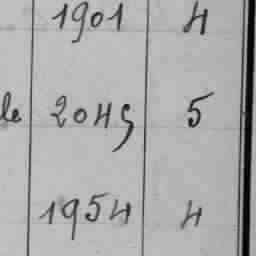 1901 4
le 2045 5
1954 4